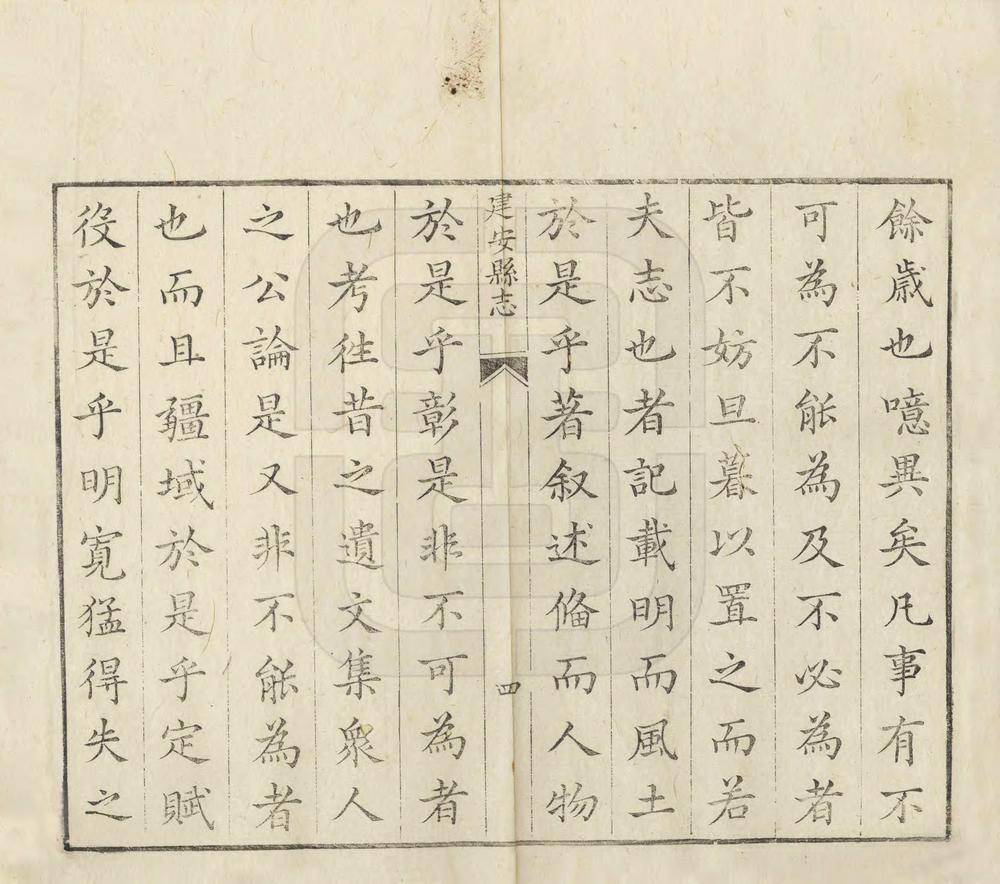 餘歲也噫異矣凡事有不
可為不能為及不必為者
皆不妨旦暮以置之而若
夫志也者記載明而風土
於是乎著叙述俻而人物
建安縣志
四
於是乎彰是非不可為者
也考徃昔之遺文集衆人
之公論是又非不能為者
也而且疆域於是乎定賦
役於是乎明寛猛得失之